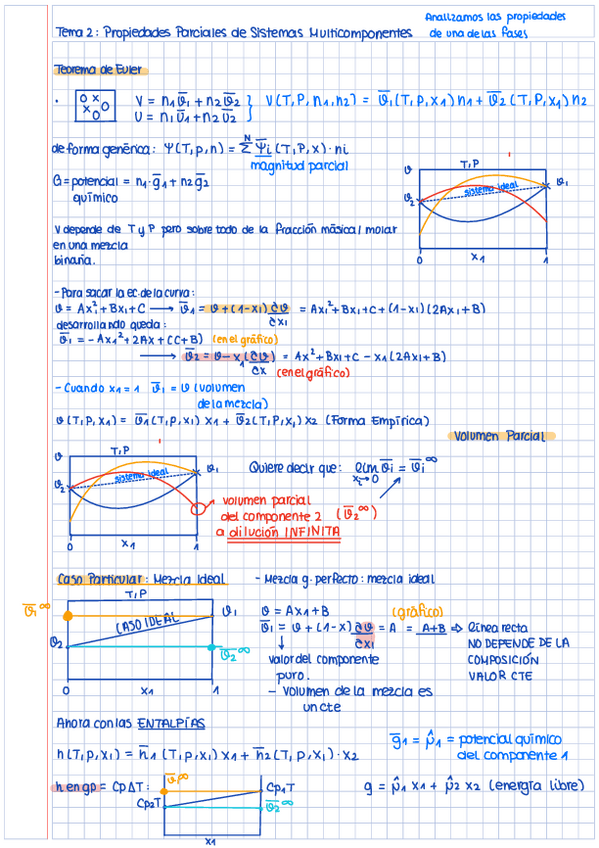 Analizamos las propiedades
Tema 2: Propiedades Parciales de Sistemas Multicomponentes de una de las fases
Teorema de Euler
V = n1 v̅1 + n2 v̅2 } V(T, P, n1, n2) = v̅1 (T, P, x1) n1 + v̅2 (T, P, x1) n2
U = n1 u̅1 + n2 u̅2
de forma genérica: Ψ(T, p, n) = Σ^N Ψ̅i (T, P, x) · ni
magnitud parcial
G = potencial = n1 · g̅1 + n2 g̅2
químico
T, P
v
v1
v2
sistema ideal
0 x1 1
V depende de T y P pero sobre todo de la fracción másica/molar
en una mezcla
binaria.
- Para sacar la ec. de la curva:
v = Ax1² + Bx1 + C ⟶ v̅1 = v + (1-x1) ∂v/∂x1 = Ax1² + Bx1 + C + (1-x1)(2Ax1 + B)
desarrollando queda:
v̅1 = -Ax1² + 2Ax + (C+B) (en el gráfico)
⟶ v̅2 = v - x1 (∂v/∂x) = Ax² + Bx1 + C - x1 (2Ax1 + B)
(en el gráfico)
- Cuando x1 = 1 v̅1 = v (volumen
de la mezcla)
v (T, P, x1) = v̅1 (T, P, x1) x1 + v̅2 (T, P, x1) x2 (Forma Empírica)
Volumen Parcial
T, P
v
v1
v2
sistema ideal
0 x1 1
Quiere decir que: lim xi→0 v̅i = v̅i^∞
volumen parcial
del componente 2 (v̅2^∞)
a dilución INFINITA
Caso Particular: Mezcla Ideal - Mezcla g. perfecto: mezcla ideal
T, P
v̅1^∞
v1
CASO IDEAL
v2
v̅2^∞
0 x1 1
v = Ax1 + B (gráfico)
v̅1 = v + (1-x) ∂v/∂x1 = A = A+B ⇒ línea recta
NO DEPENDE DE LA
COMPOSICIÓN
VALOR CTE
valor del componente
puro.
- Volumen de la mezcla es
un cte
Ahora con las ENTALPÍAS
h (T, p, x1) = h̅1 (T, P, x1) x1 + h̅2 (T, P, x1) · x2
g̅1 = μ̂1 = potencial químico
del componente 1
h en gp = CpΔT:
v̅1^∞
Cp1T
Cp2T
v̅2^∞
x1
g = μ̂1 x1 + μ̂2 x2 (energía libre)